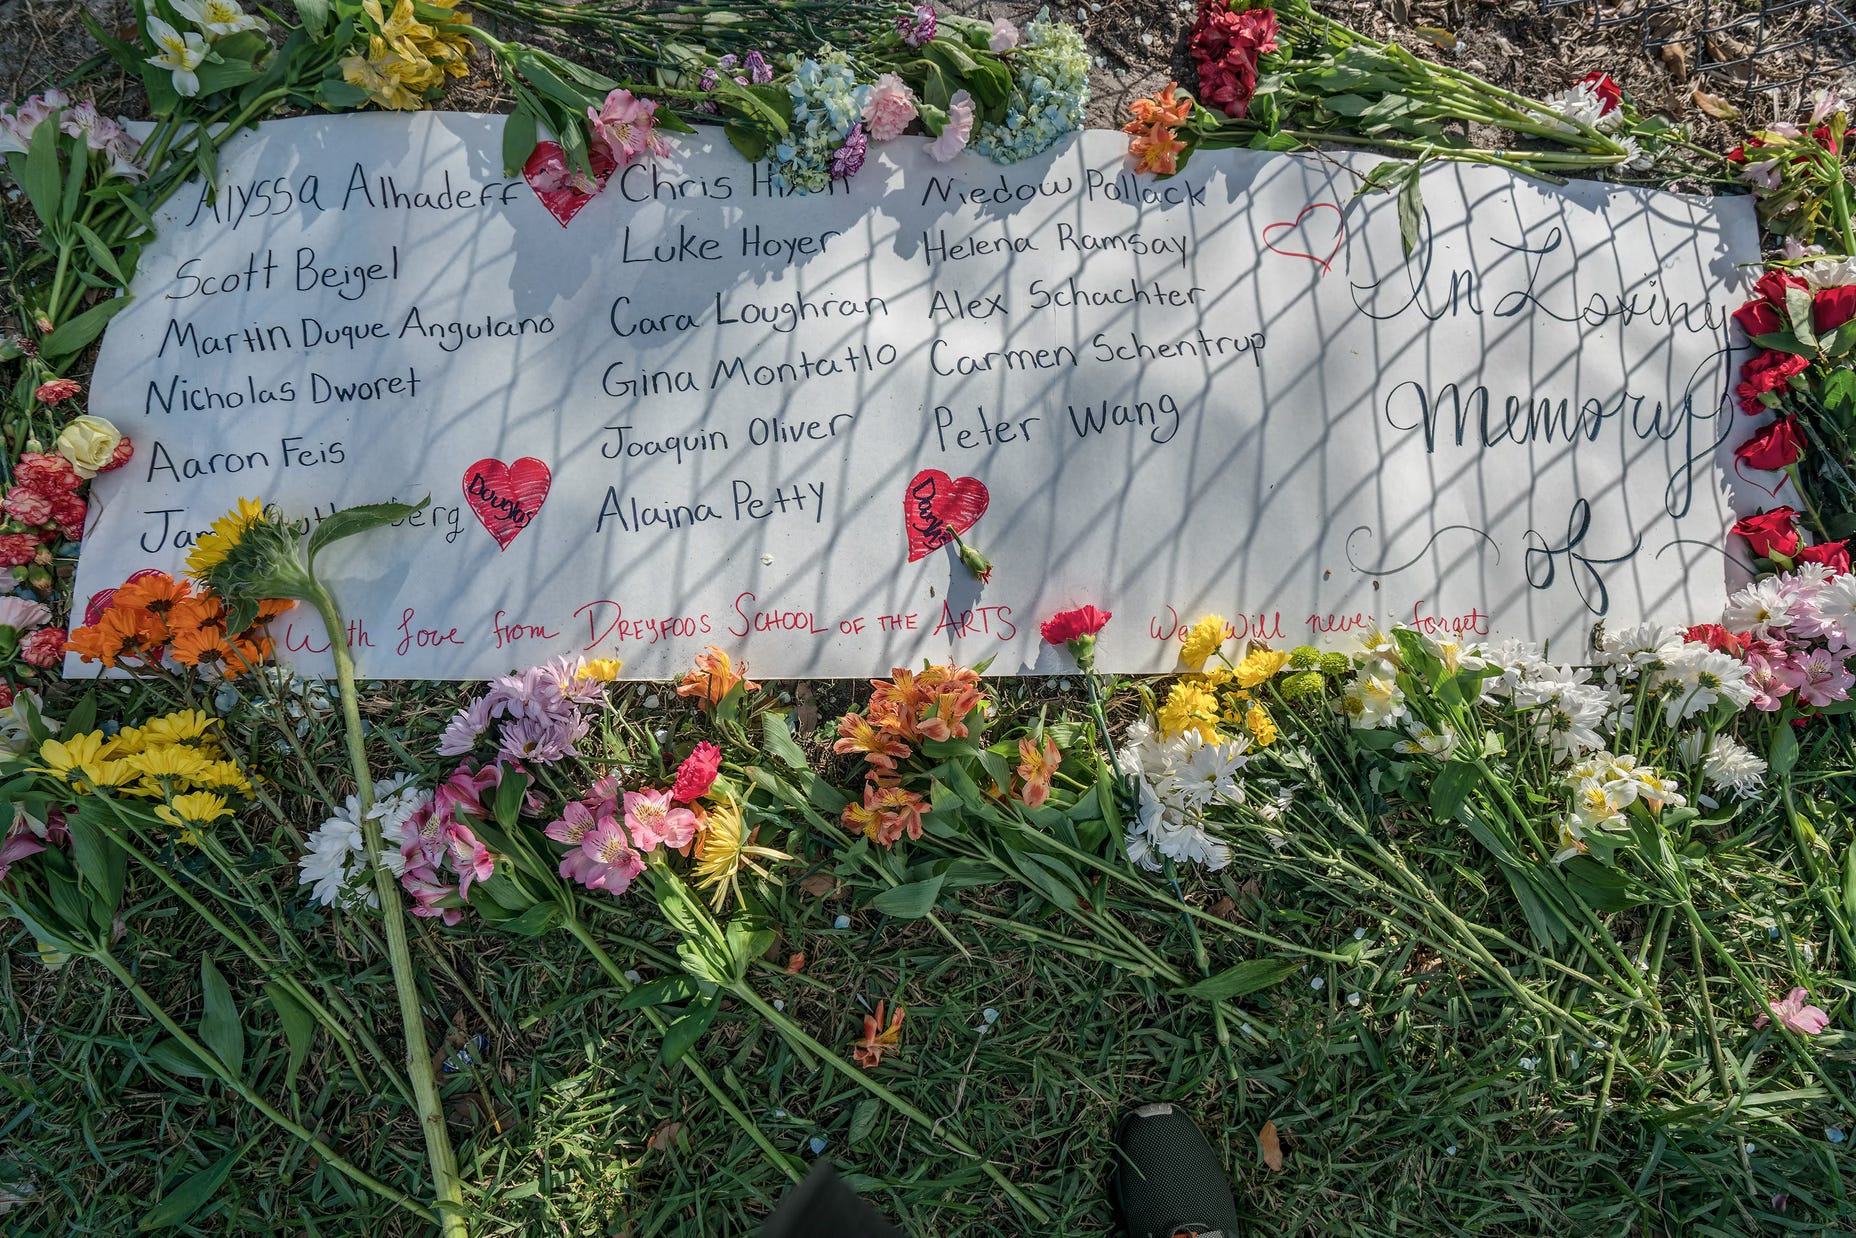 Alyssa Alhadeff
Scott Beigel
Martin Duque Angulano
Nicholas Dworet
Aaron Feis
Chris Hixon
Luke Hoyer
Cara Loughran
Gina Montatlo
Joaquin Oliver
Alaina Petty
Niedow Pollack
Helena Ramsay
Alex Schachter
Carmen Schentrup
Peter Wang
In Loving
Memory
of
Douglas
With love from DREYFOOS SCHOOL OF THE ARTS
We will never forget.